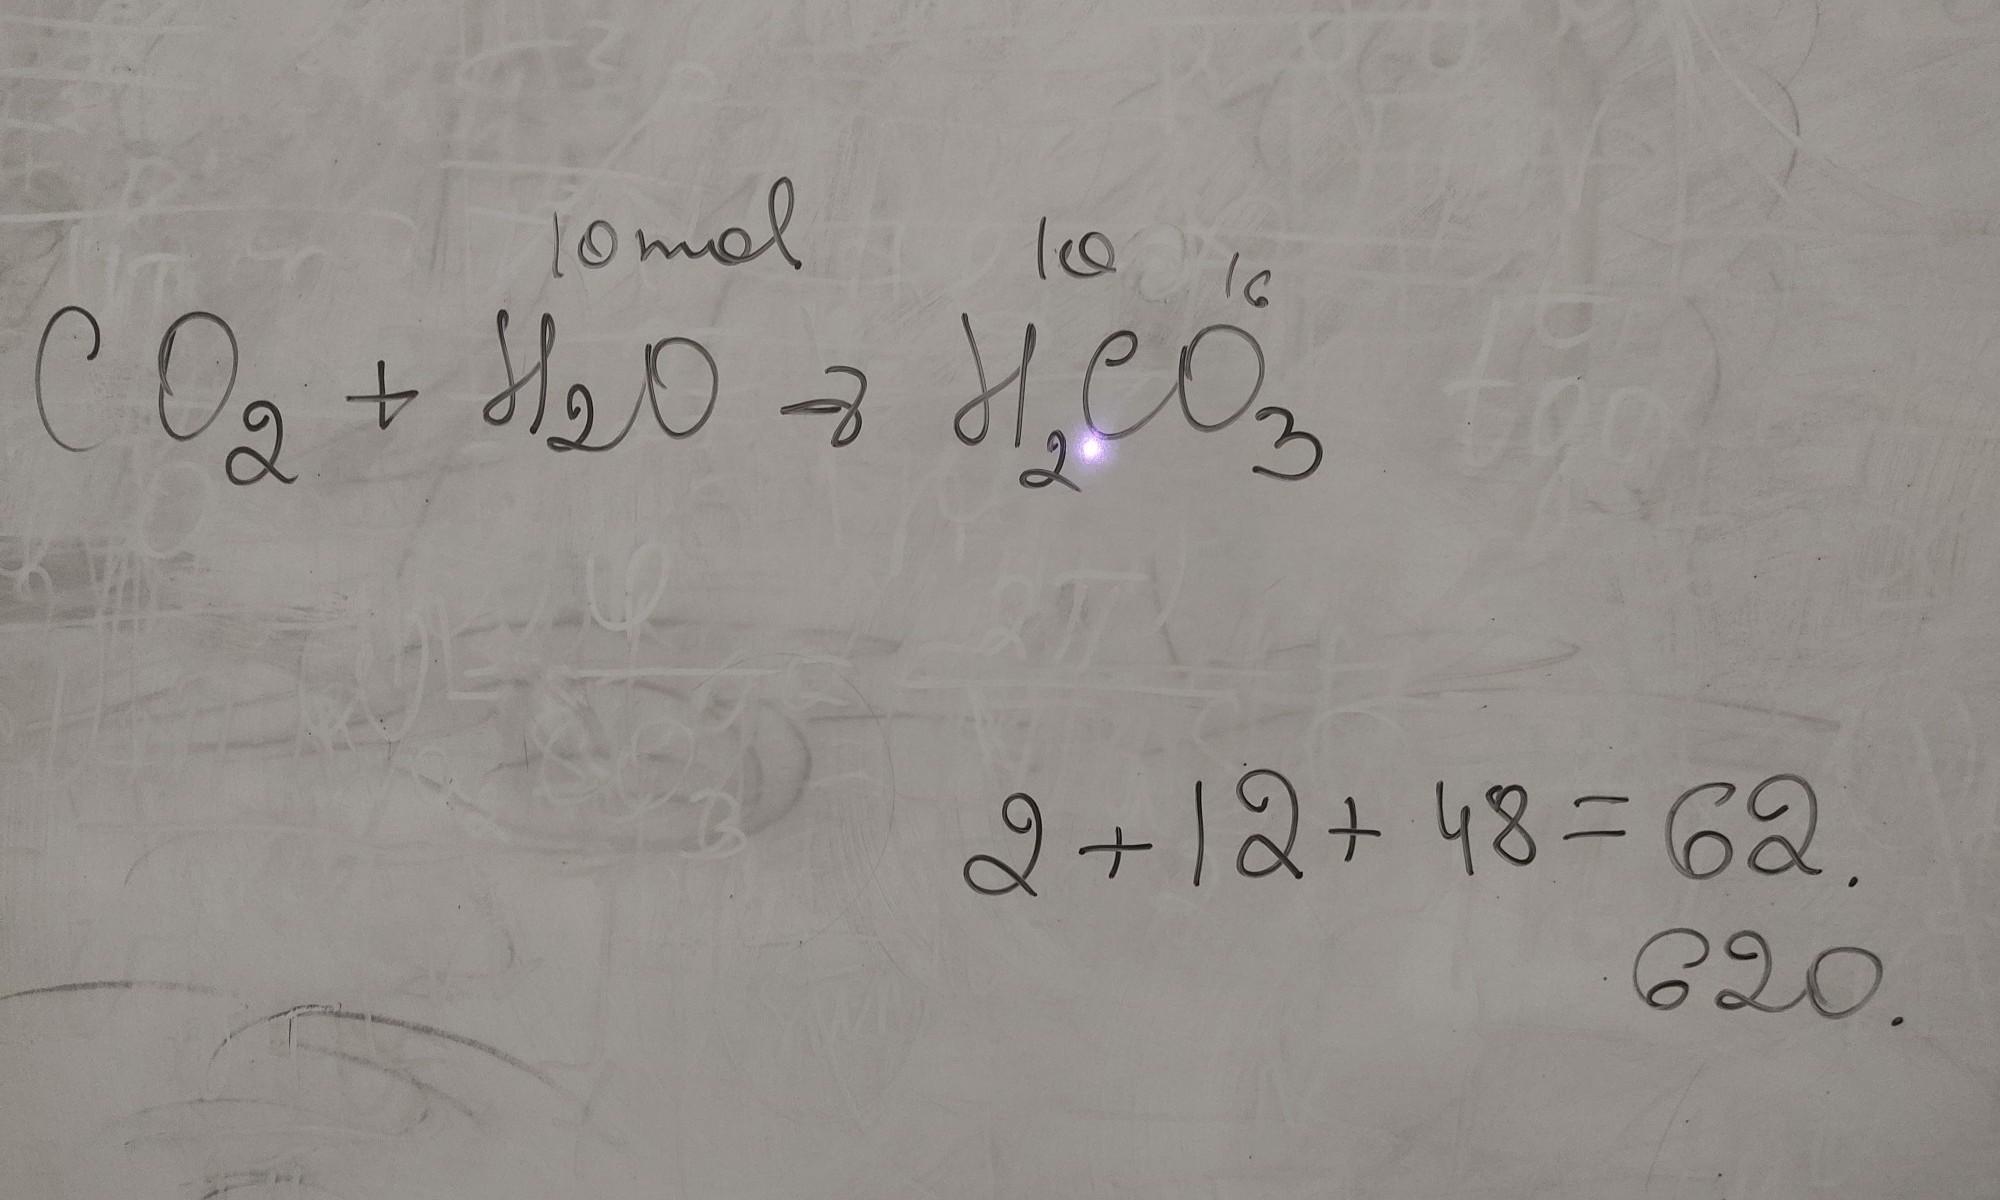 10 mol 10 16
CO₂ + H₂O → H₂CO₃
2 + 12 + 48 = 62.
620.